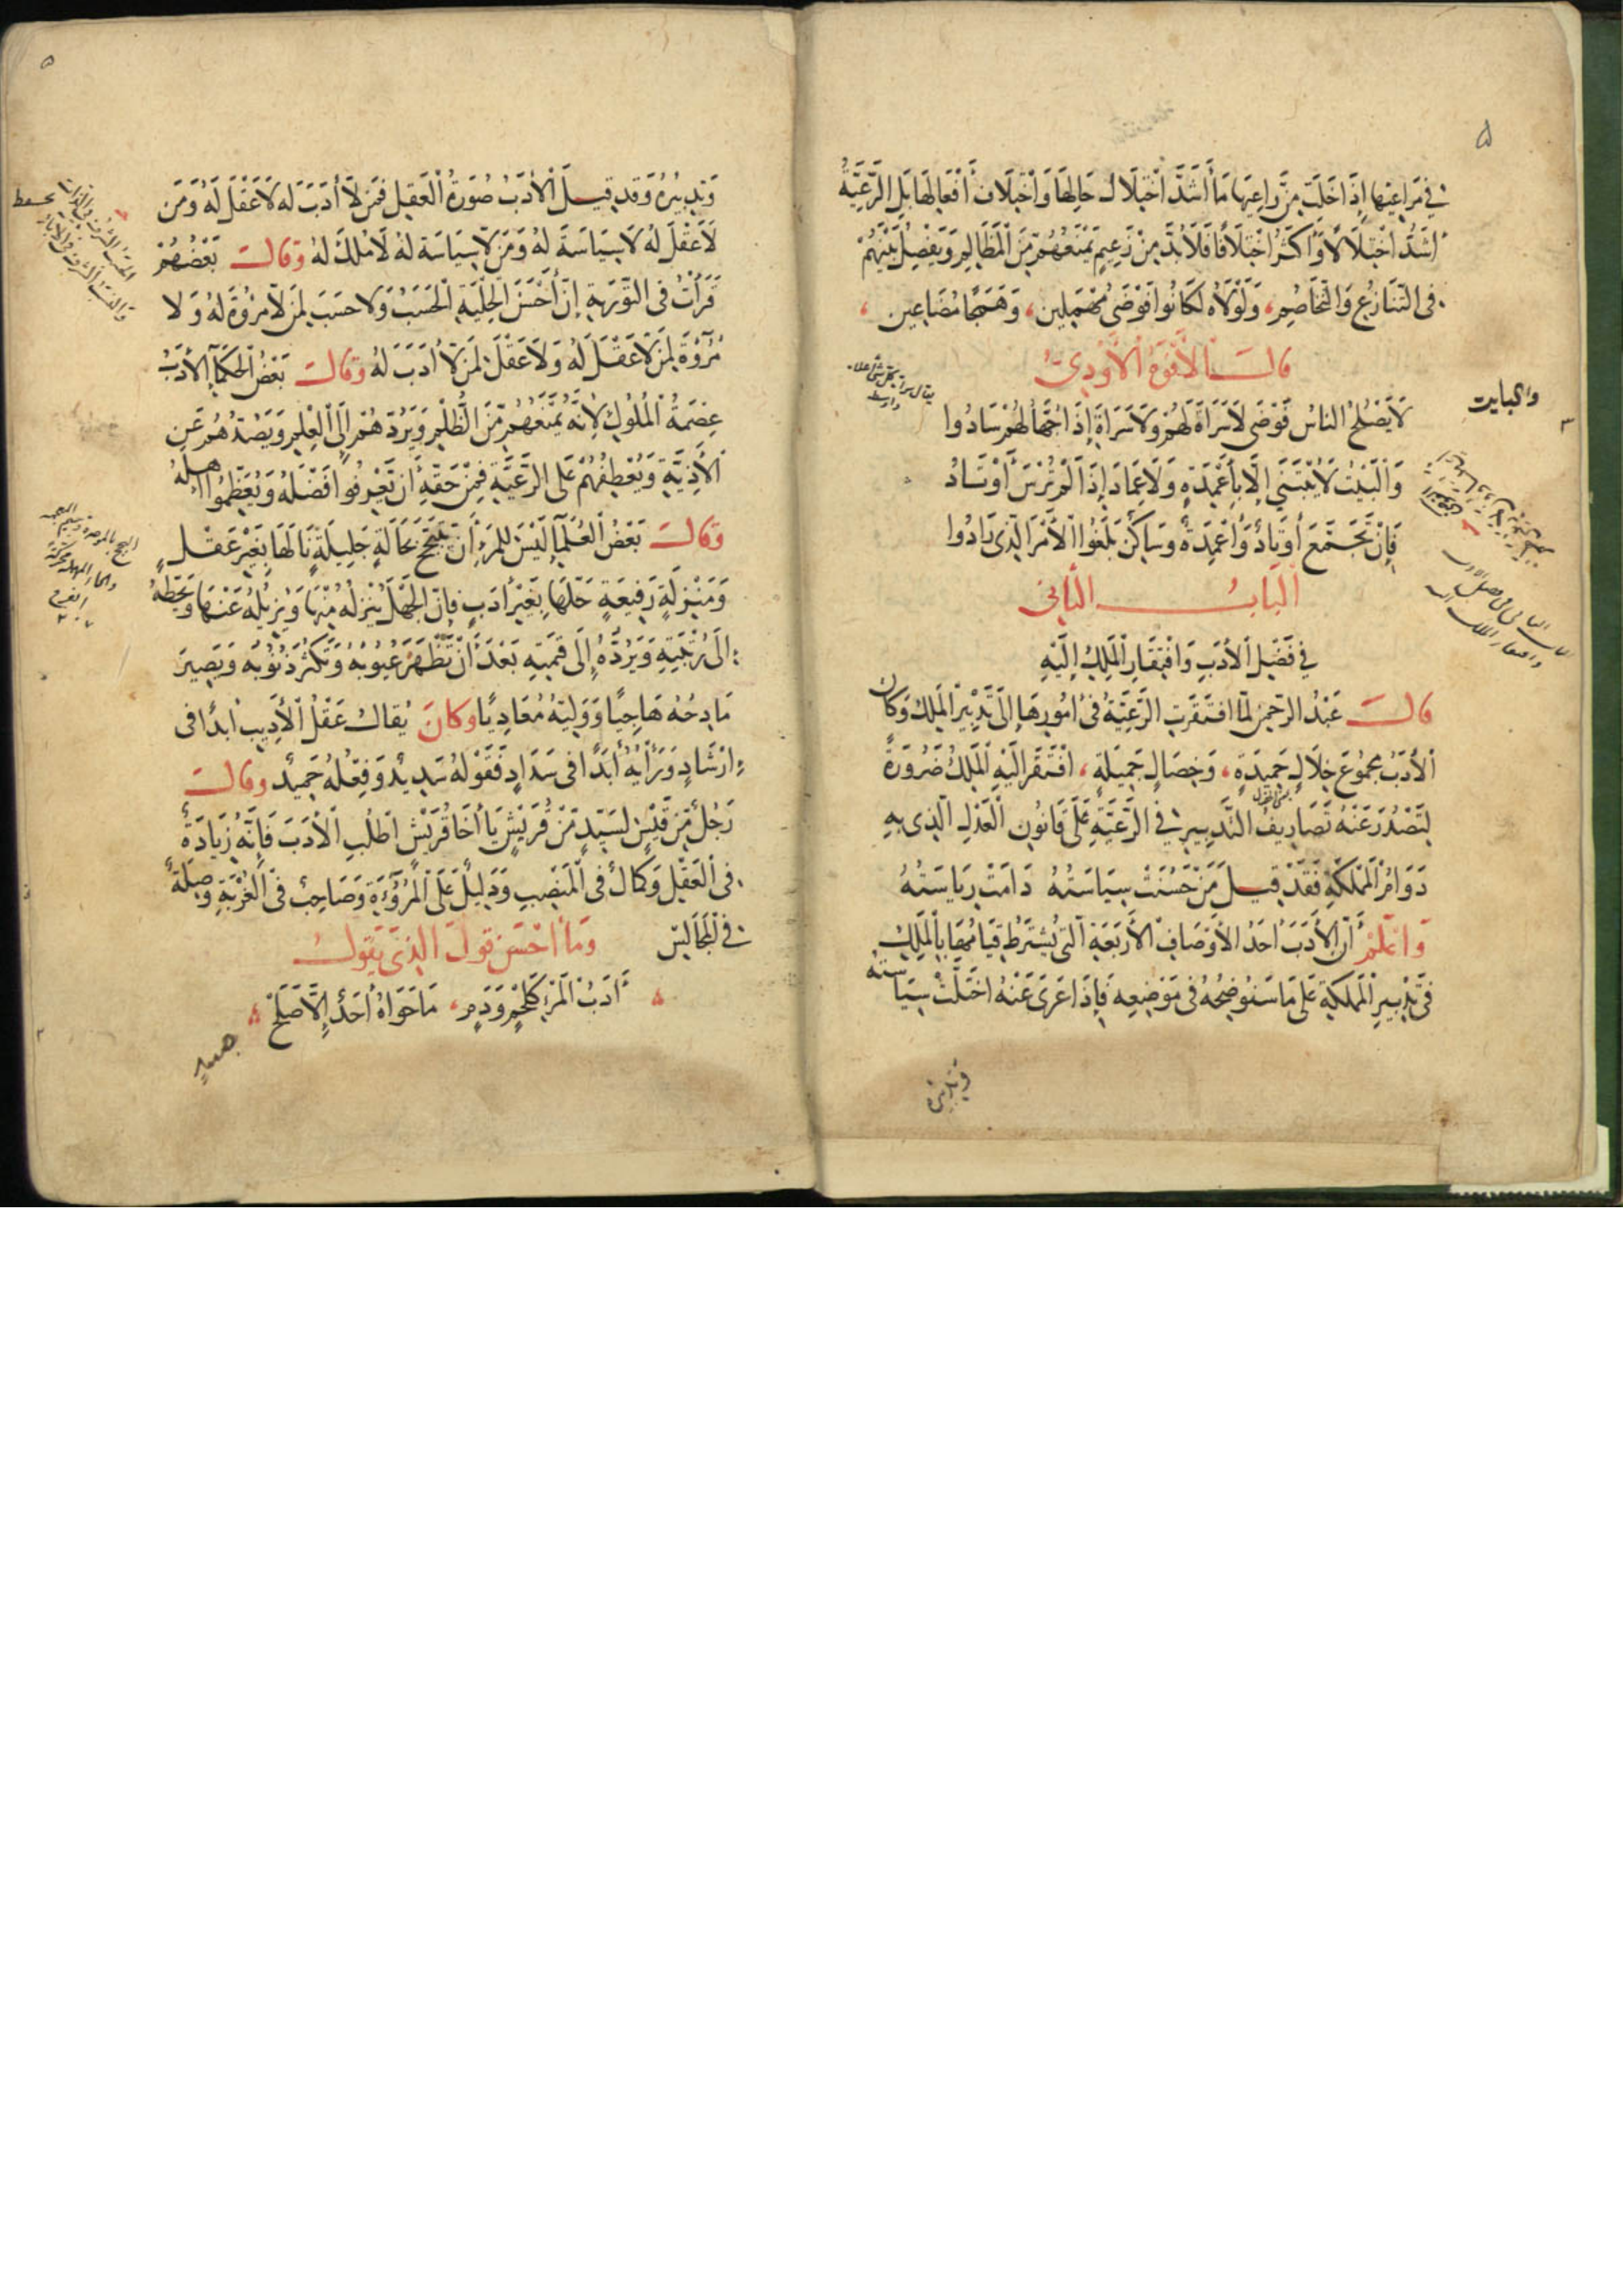 في مراعيها إذا خلت من راعيها ما أشد اختلال حالها واختلاف أفعالها بل الرعية
أشد اختلالا وأكثر اختلافا فلا بد من زعيم يمنعهم من المظالم ويفصل بينهم
في التنازع والتخاصم، ولولاه لكانوا فوضى مهملين، وهمجا مضاعين،
قال الأفوه الأودي
لا يصلح الناس فوضى لا سراة لهم ولا سراة إذا جهالهم سادوا
والبيت لا يبتنى إلا بأعمدة ولا عماد إذا لم ترس أوتاد
فإن تجمع أوتاد وأعمدة وساكن بلغوا الأمر الذي رادوا
الباب الثاني
في فضل الأدب وافتقار الملك إليه
قال عبد الرحمن لما افتقرت الرعية في أمورها إلى تدبير الملك وكان
الأدب مجموع خلال حميدة، وخصال جميلة، افتقر إليه الملك ضرورة
لتصدر عنه تصاريف التدبير في الرعية على قانون العدل الذي به
دوام المملكة فقد قيل من حسنت سياسته دامت رياسته
واعلم أن الأدب أحد الأوصاف الأربعة التي يشترط قيامها بالملك
في تدبير المملكة على ما سنوضحه في موضعه فإذا عرى عنه اختلت سياسته
وتدبيره
وتدبيره وقد قيل الأدب صورة العقل فمن لا أدب له لا عقل له ومن
لا عقل له لا سياسة له ومن لا سياسة له لا ملك له وقال بعضهم
قرأت في التورية إن أحسن الحلية الحسب ولا حسب لمن لا مروة له ولا
مروة لمن لا عقل له ولا عقل لمن لا أدب له وقال بعض الحكماء الأدب
عصمة الملوك لأنه يمنعهم من الظلم ويردهم إلى العلم ويصدهم عن
الأذية ويعطفهم على الرعية فمن حقه أن يعرفوا فضله ويعظموا أهله
وقال بعض العلماء ليس للمرء أن يتبجح بحالة جليلة نالها بغير عقل
ومنزلة رفيعة حلها بغير أدب فإن الجهل ينزله منها ويزيله عنها ويحطه
إلى رتبته ويرده إلى قيمته بعد أن تظهر عيوبه وتكثر ذنوبه ويصير
مادحه هاجيا ووليه معاديا وكان يقال عقل الأديب أبدا في
إرشاد ورأيه أبدا في سداد فقوله سديد وفعله حميد وقال
رجل من قيس لسيد من قريش يا أخا قريش اطلب الأدب فإنه زيادة
في العقل وكمال في المنصب ودليل على المروءة وصاحب في الغربة وصلة
في المجالس وما أحسن قول الذي يقول
أدب المرء كلحم ودم، ما حواه أحد إلا صلح